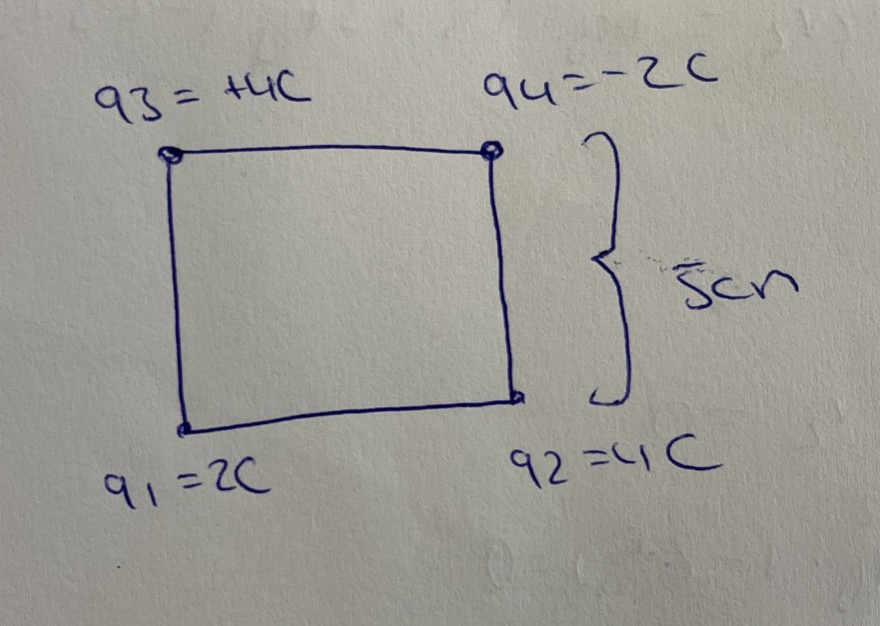 q3 = +4C
q4 = -2C
5cm
q1 = 2C
q2 = 4C